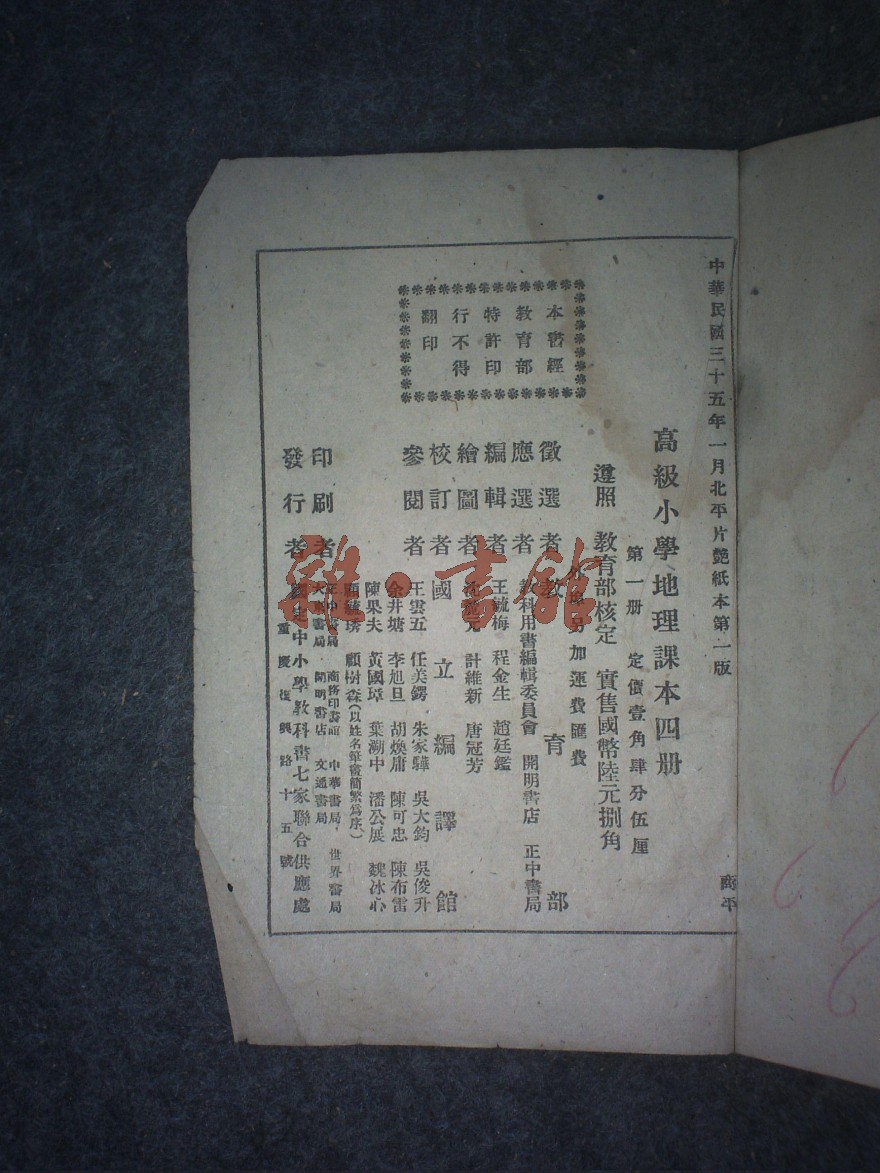 中華民國三十五年一月北平片艷紙本第一版
商平
高級小學地理課本四册
第一册 定價壹角肆分伍厘
遵照 教育部核定 實售國幣陸元捌角
外埠另加運費匯費
本書經
教育部
特許印
行不得
翻印
徵選者 教育部
應選者 教科用書編輯委員會 開明書店 正中書局
編輯者 王毓梅 程金生 趙廷鑑
繪圖者 計維新 唐冠芳
校訂者 國立編譯館
參閱者 王雲五 任美鍔 朱家驊 吳大鈞 吳俊升
余井塘 李旭旦 胡煥庸 陳可忠 陳布雷
陳果夫 黃國璋 葉溯中 潘公展 魏冰心
顧樹森(以姓名筆畫簡繁爲序)
印刷者 正中書局 商務印書館 中華書局 世界書局
大東書局 開明書店 文通書局
發行者 國定中小學教科書七家聯合供應處
重慶復興路十五號
雜·書館